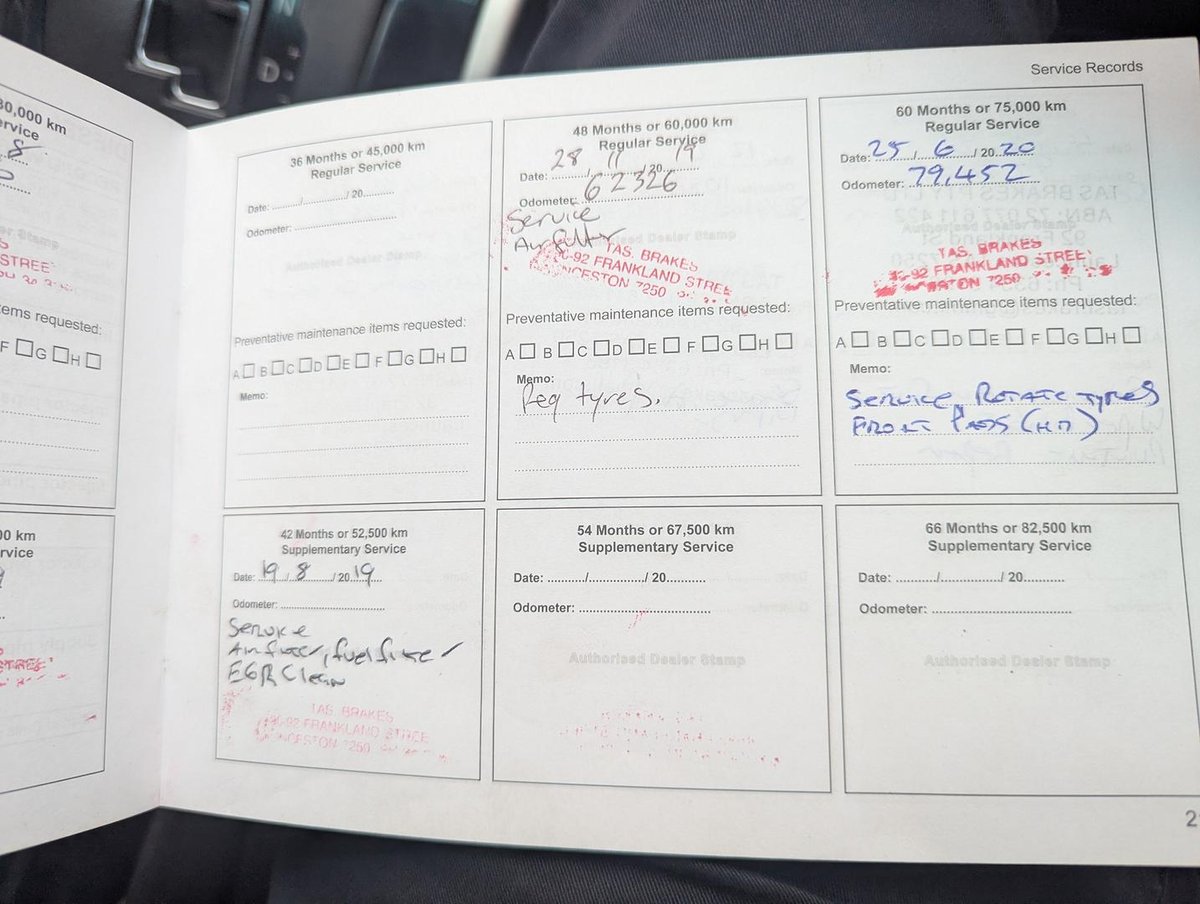 Service Records
0,000 km
36 Months or 45,000 km
Regular Service
Date: ......../............/ 20...........
Odometer: ....................................
Authorised Dealer Stamp
Preventative maintenance items requested:
A B C D E F G H
Memo:
48 Months or 60,000 km
Regular Service
Date: 28 / 11 / 20 19
Odometer: 62326
Service
Air filter
Authorised Dealer Stamp
TAS. BRAKES
-92 FRANKLAND STREE
NCESTON 7250
Preventative maintenance items requested:
A B C D E F G H
Memo:
Req tyres.
60 Months or 75,000 km
Regular Service
Date: 25 / 6 / 20 20
Odometer: 79,452
TAS. BRAKES
-92 FRANKLAND STREE
STON 7250
Preventative maintenance items requested:
A B C D E F G H
Memo:
SERVICE, ROTATE TYRES
FRONT PADS (HD)
STREE
ems requested:
F G H
42 Months or 52,500 km
Supplementary Service
Date: 19 / 8 / 20 19
Odometer: ....................................
Service
Air filter, fuel filter
EGR Clean
TAS. BRAKES
-92 FRANKLAND STREE
NCESTON 7250
54 Months or 67,500 km
Supplementary Service
Date: ........../.............../ 20...........
Odometer: ....................................
Authorised Dealer Stamp
66 Months or 82,500 km
Supplementary Service
Date: ........../.............../ 20...........
Odometer: ....................................
Authorised Dealer Stamp